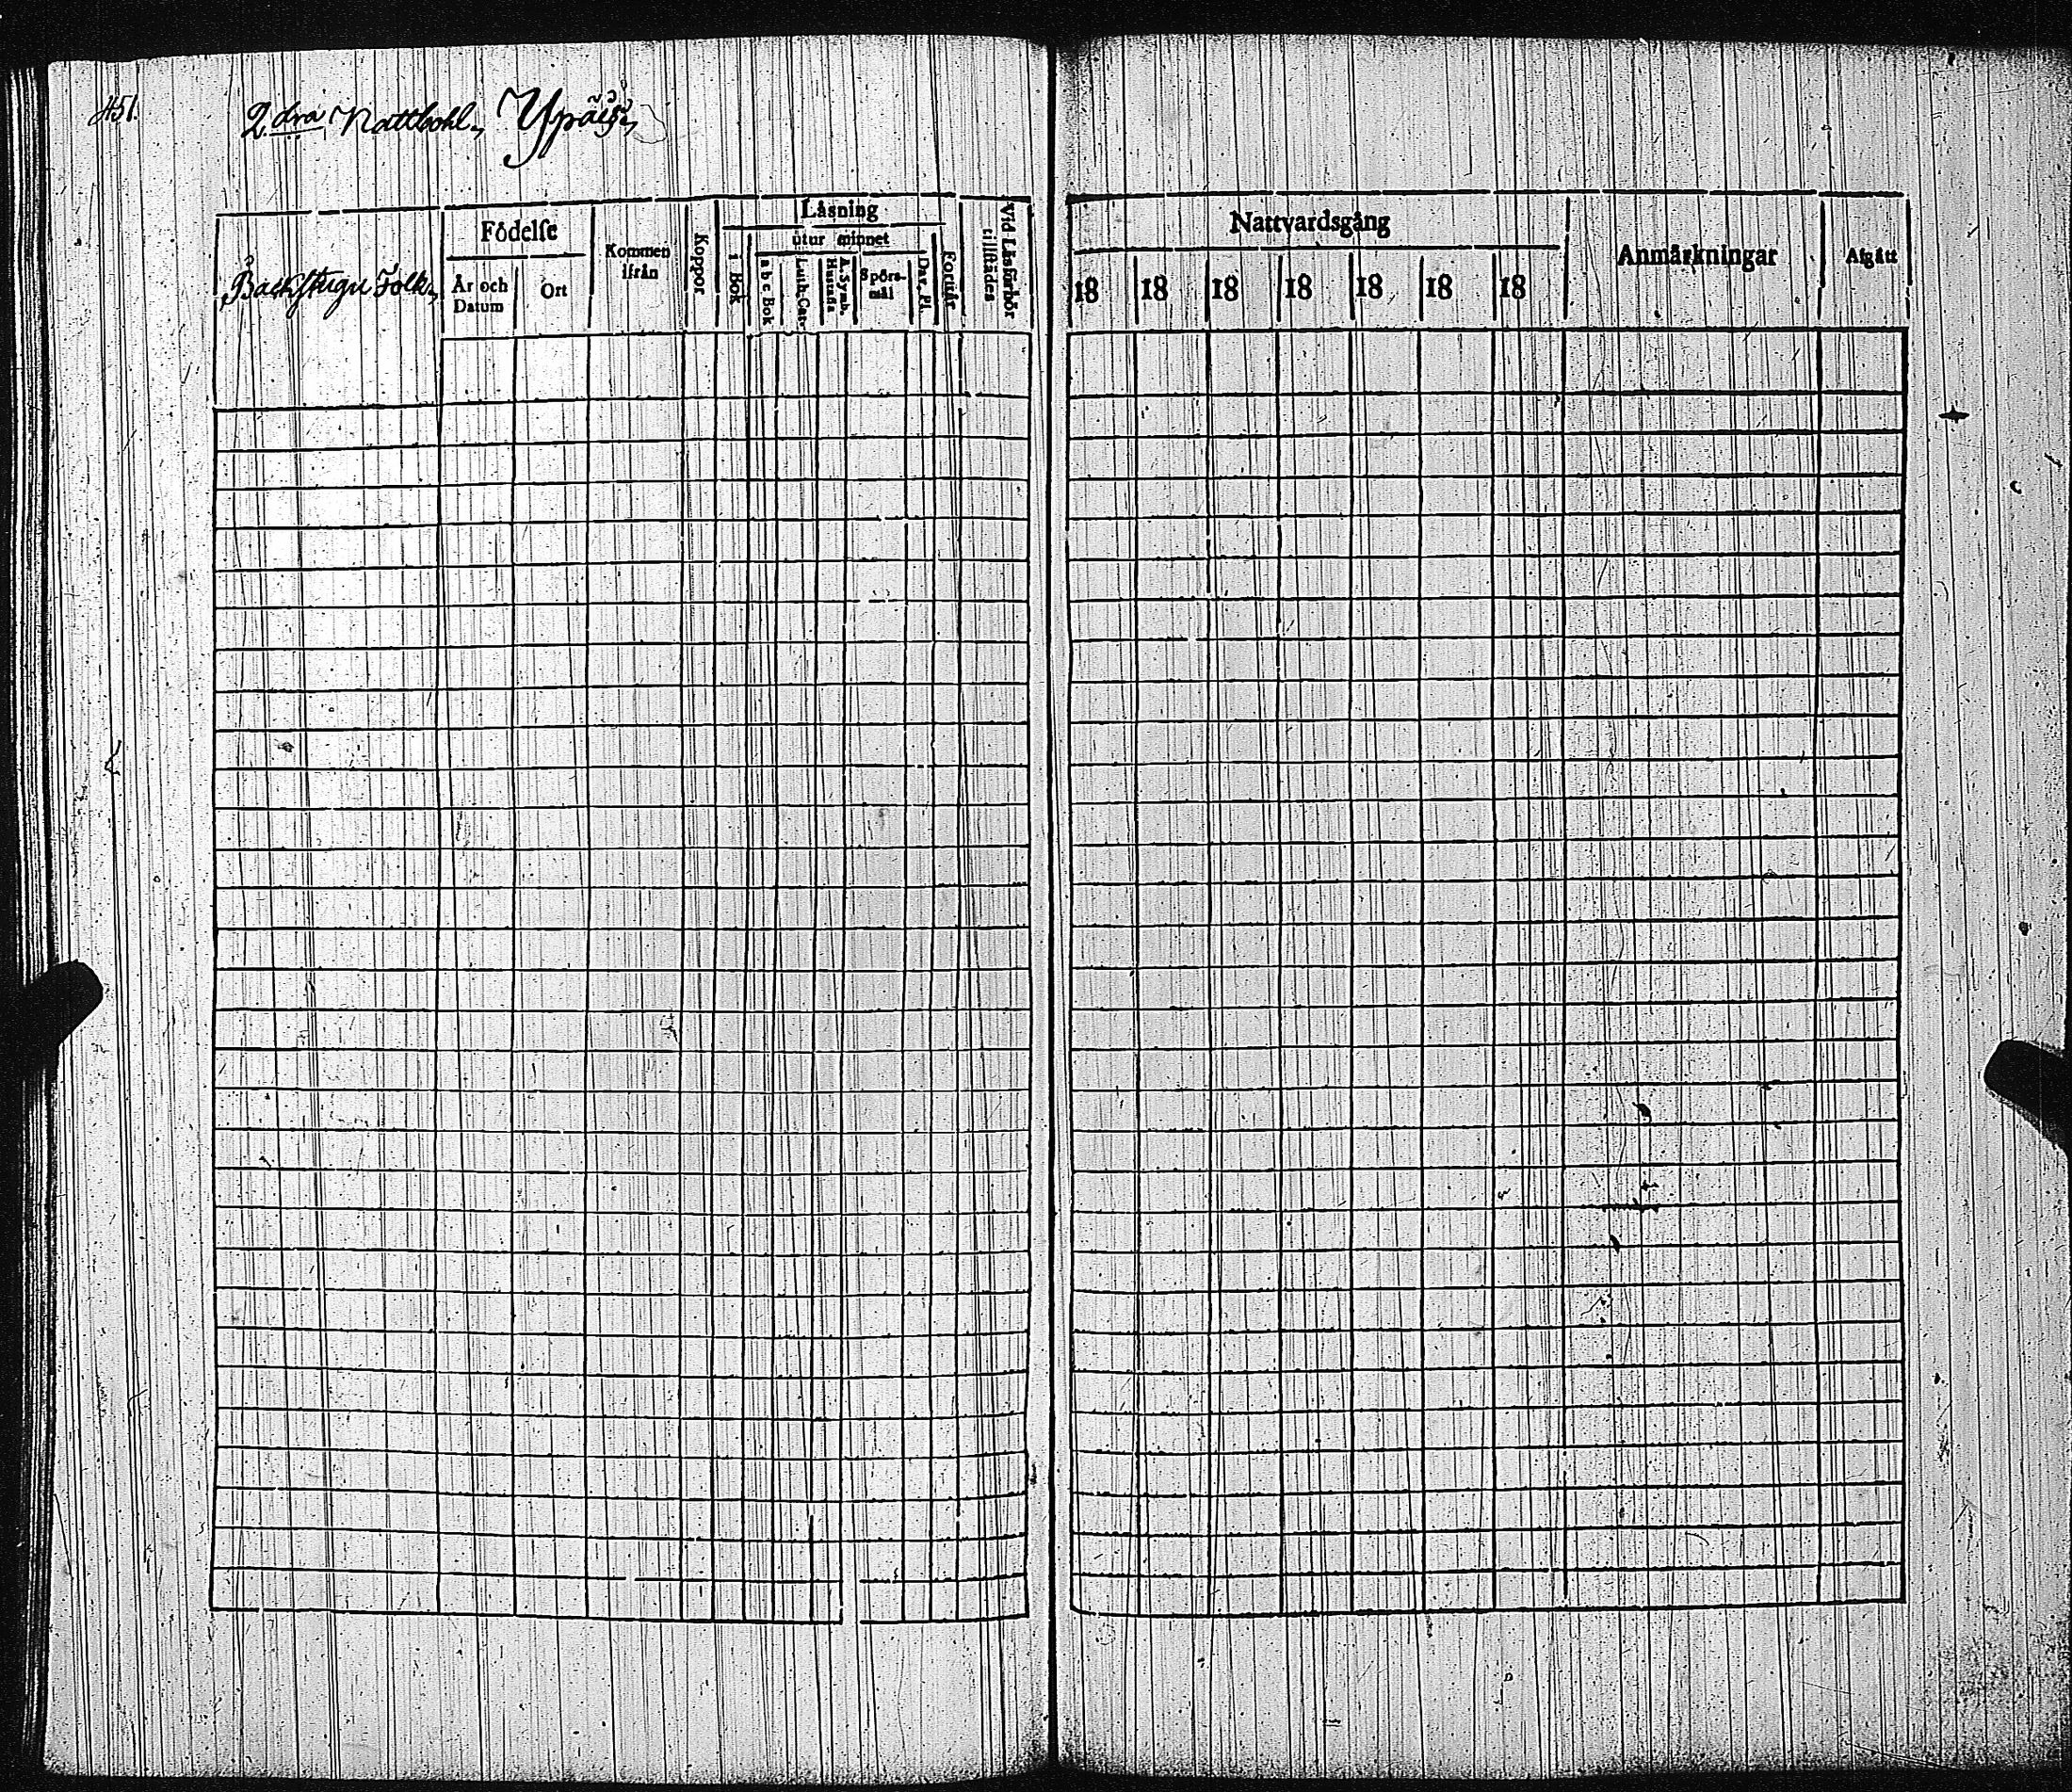 451.
2. dra Nattbohl, Ypäis,
Backstugu Folk,
Födelſe
År och Datum
Ort
Kommen ifrån
Koppor
Läsning
i Bok
utur minnet
a b c Bok
Luth. Cat.
A. Symb. Hustafla
Spörs-mål
Dav. Pſ.
Förstår
Vid Läsförhör tillſtädes
Nattvardsgång
18 18 18 18 18 18 18
Anmärkningar
Afgått